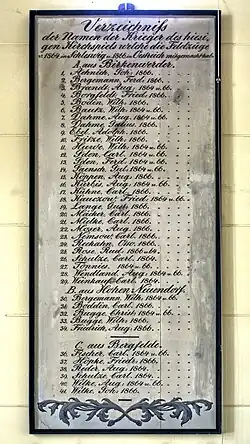 Verzeichniß
der Namen der Krieger des hiesi
gen Kirchspiels welche die Feldzüge
v. 1864 in Schleswig u. 1866 in Oestreich mitgemacht hab.
A. aus Birkenwerder.
1. Johnich, Joh. 1866.
2. Bergemann, Ferd. 1866.
3. Brandt, Aug. 1864 u. 66.
4. Borgfeldt, Fried. 1866.
5. Boden, Wilh. 1866.
6. Bautz, Wilh. 1864 u. 66.
7. Dahme, Aug. 1864 u. 66.
8. Dahme, Julius. 1866.
9. Ebel, Adolph. 1866.
10. Fritze, Wilh. 1866.
11. Wilh. 1864 u. 66.
12. Carl. 1864 u. 66.
13. Ferd. 1864 u. 66.
14. Jaensch, Jul. 1864 u. 66.
15. Koppen, Aug. 1866.
16. Kürbis, Aug. 1864 u. 66.
17. Kühne, Carl. 1866.
18. Fried. 1864 u. 66.
19. Lange, Gust. 1866.
20. Carl. 1866.
21. Mielke, Carl. 1866.
22. Meyer, Aug. 1866.
23. Carl. 1864 u. 66.
24. Rechahn, 1866.
25. Rose, Rud. 1866.
26. Schulze, Carl. 1866.
27. Tönnies. 1864 u. 66.
28. Wendland, Aug. 1864 u. 66.
29. Carl. 1864.
B. aus Hohen Neuendorf.
30. Bergemann, Wilh. 1864 u. 66.
31. Boddin, Carl. 1866.
32. Bugge, Christ. 1864 u. 66.
33. Bugge, Wilh. 1866.
34. Friedrich, Aug. 1866.
C. aus Bergfelde.
36. Fischer, Carl. 1864 u. 66.
37. Höpke, Friedr. 1866.
38. Reder, Aug. 1864.
39. Schulze, Carl. 1864.
40. Wilke, Aug. 1864 u. 66.
41. Wilke, Joh. 1866.